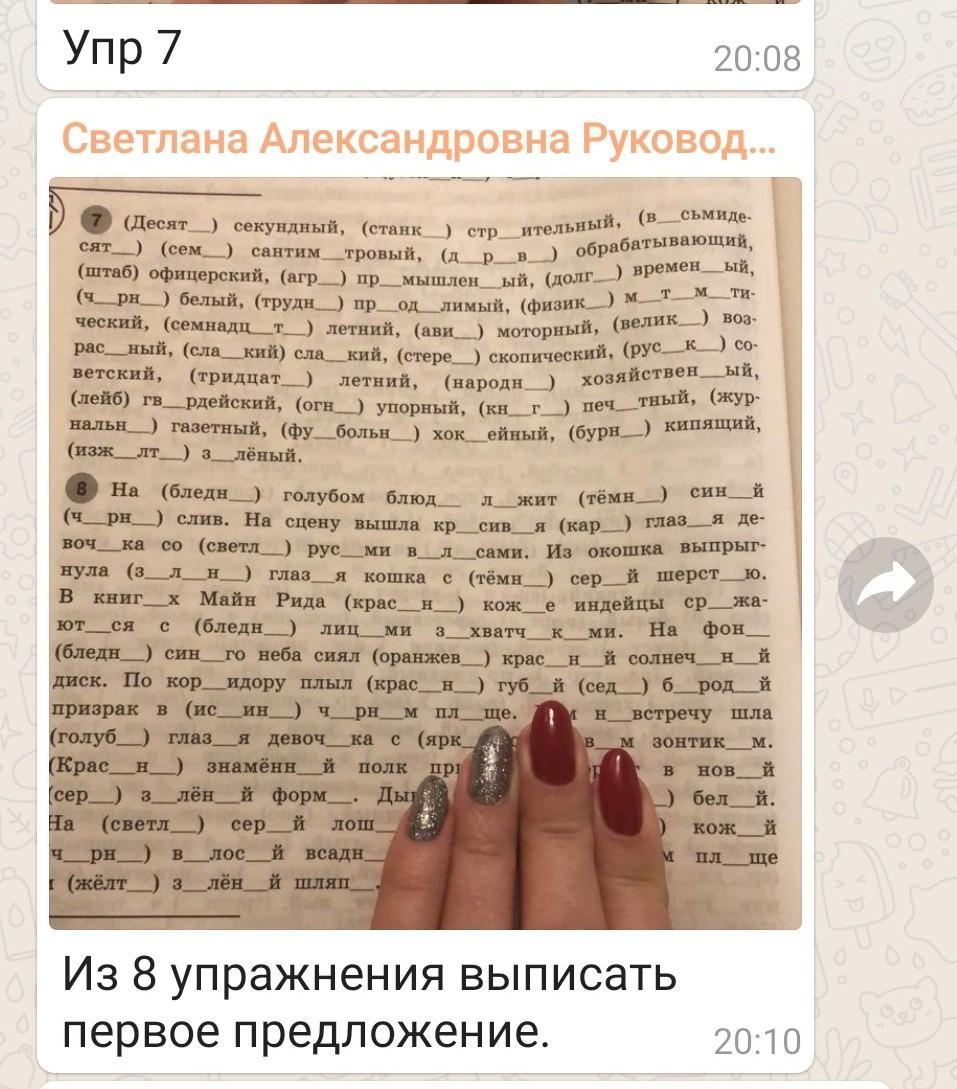 Упр 7
20:08
Светлана Александровна Руковод...
7 (Десят__) секундный, (станк__) стр__ительный, (в__сьмиде-
сят__) (сем__) сантим__тровый, (д__р__в__) обрабатывающий,
(штаб) офицерский, (агр__) пр__мышлен__ый, (долг__) времен__ый,
(ч__рн__) белый, (трудн__) пр__од__лимый, (физик__) м__т__м__ти-
ческий, (семнадц__т__) летний, (ави__) моторный, (велик__) воз-
рас__ный, (сла__кий) сла__кий, (стере__) скопический, (рус__к__) со-
ветский, (тридцат__) летний, (народн__) хозяйствен__ый,
(лейб) гв__рдейский, (огн__) упорный, (кн__г__) печ__тный, (жур-
нальн__) газетный, (фу__больн__) хок__ейный, (бурн__) кипящий,
(изж__лт__) з__лёный.
8 На (бледн__) голубом блюд__ л__жит (тёмн__) син__й
(ч__рн__) слив. На сцену вышла кр__сив__я (кар__) глаз__я де-
воч__ка со (светл__) рус__ми в__л__сами. Из окошка выпрыг-
нула (з__л__н__) глаз__я кошка с (тёмн__) сер__й шерст__ю.
В книг__х Майн Рида (крас__н__) кож__е индейцы ср__жа-
ют__ся с (бледн__) лиц__ми з__хватч__к__ми. На фон__
(бледн__) син__го неба сиял (оранжев__) крас__н__й солнеч__н__й
диск. По кор__идору плыл (крас__н__) губ__й (сед__) б__род__й
призрак в (ис__ин__) ч__рн__м пл__ще. н__встречу шла
(голуб__) глаз__я девоч__ка с (ярк__ в__м зонтик__м.
(Крас__н__) знамённ__й полк в нов__й
(сер__) з__лён__й форм__. __) бел__й.
На (светл__) сер__й лош__ ) кож__й
ч__рн__) в__лос__й всадн__ м пл__ще
(жёлт__) з__лён__й шляп__.
Из 8 упражнения выписать
первое предложение.
20:10